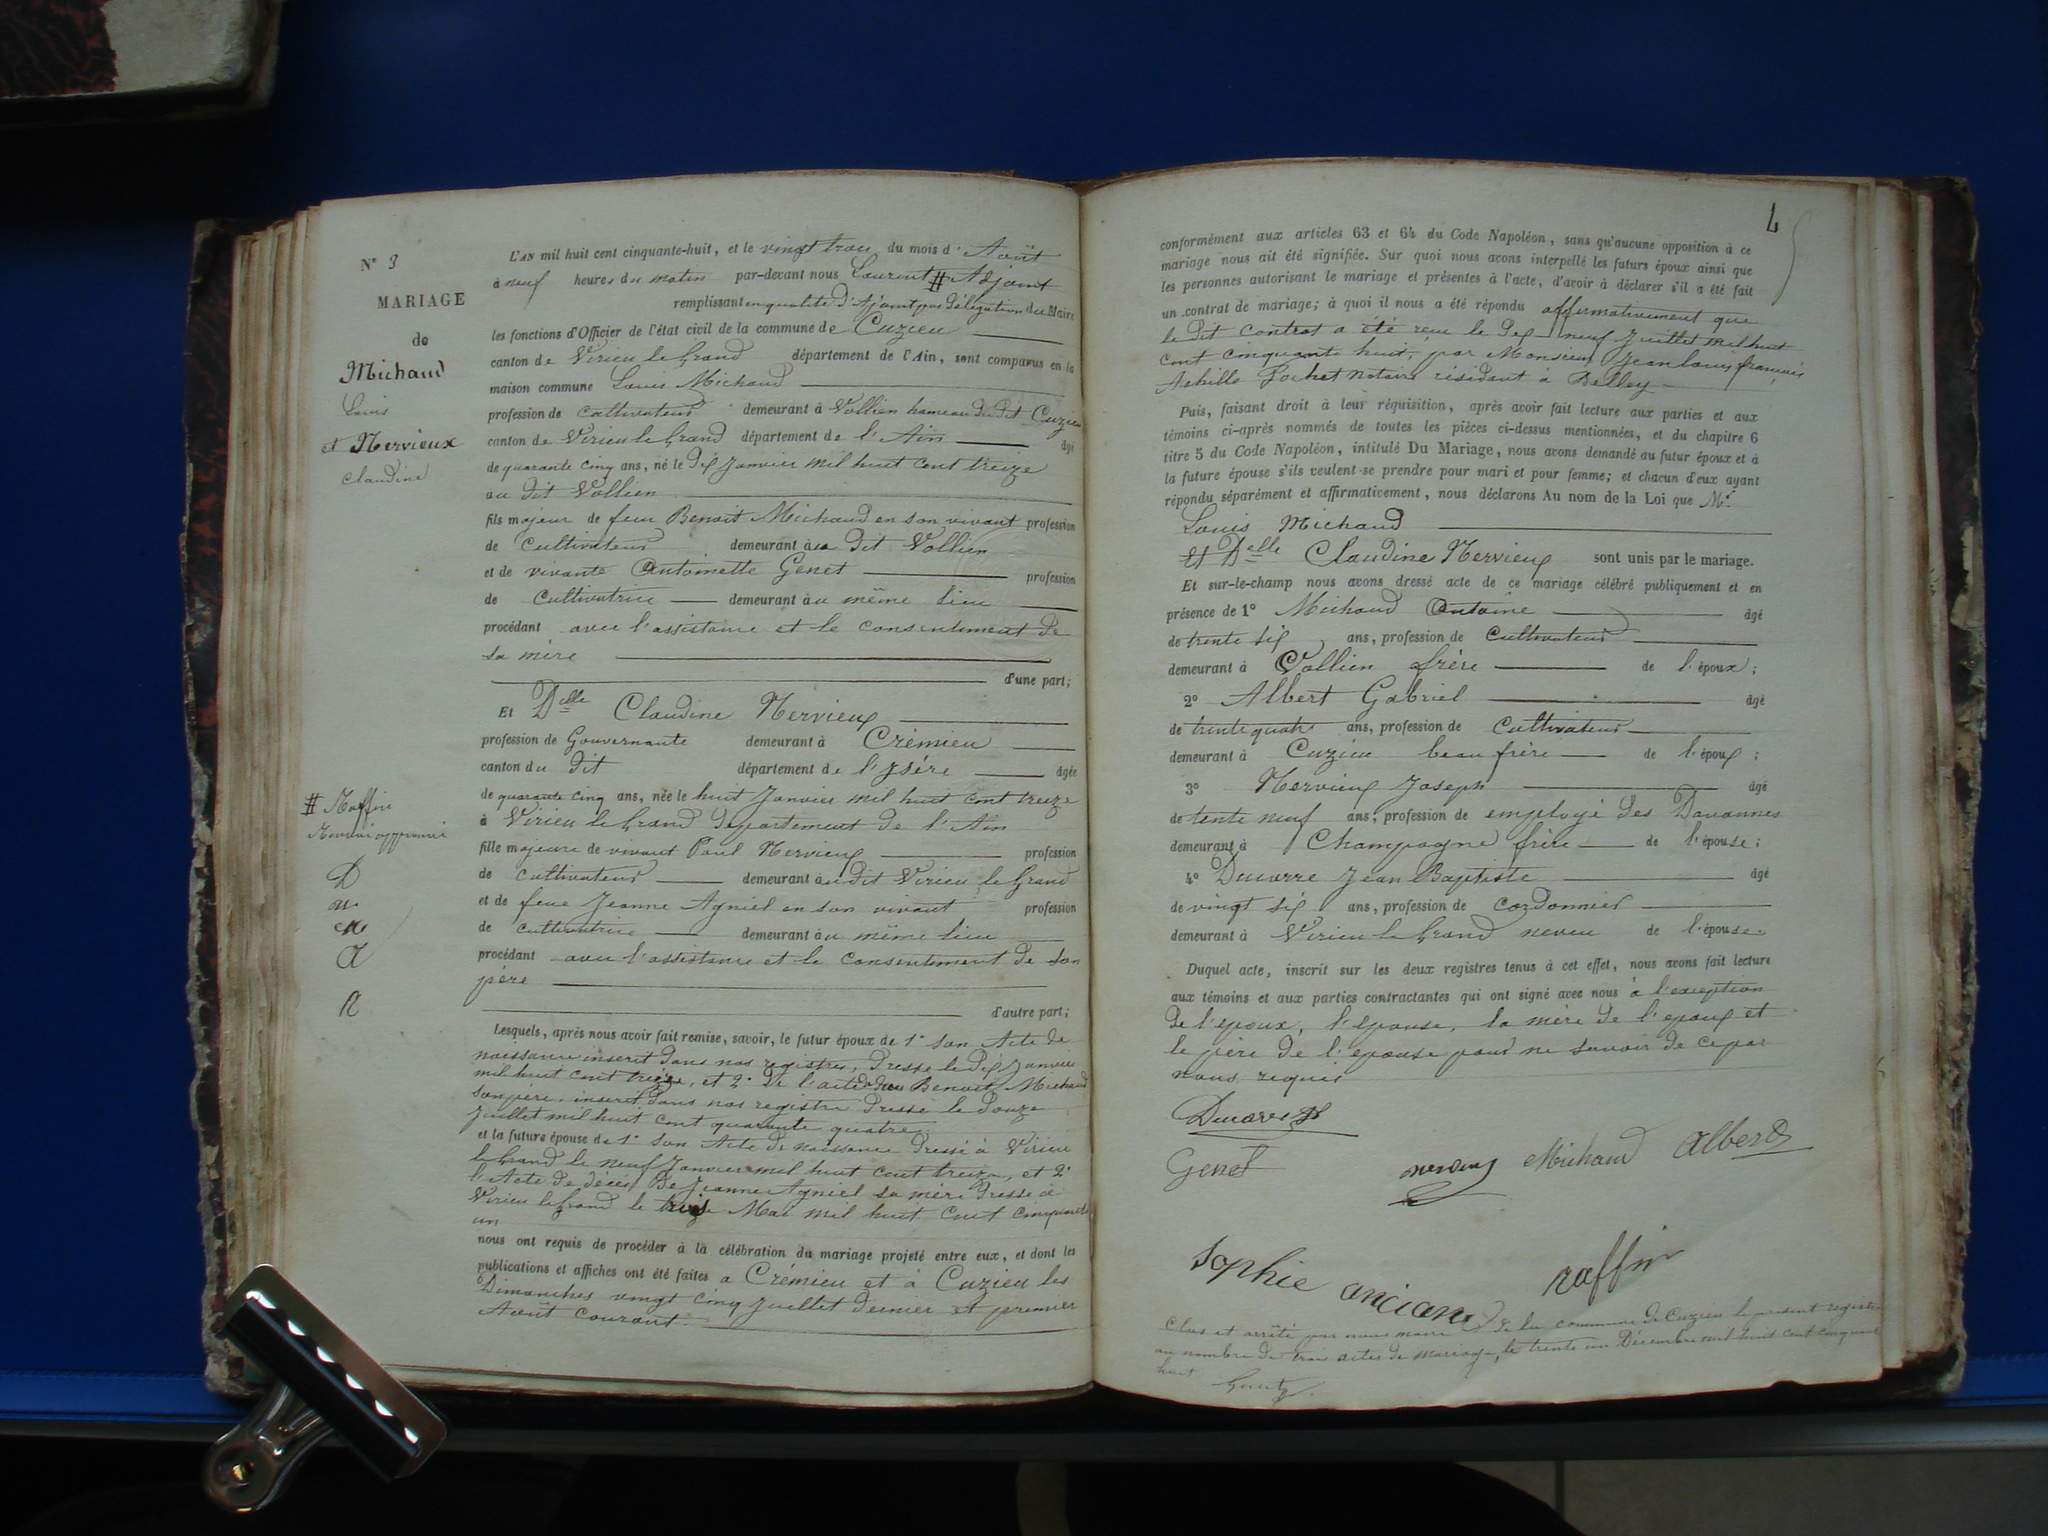 N° 3
MARIAGE
de
Michaud
Louis
et Nervieux
Claudine
# Raffin
L'AN mil huit cent cinquante-huit, et le vingt trois du mois d'Août
à neuf heures du matin par-devant nous Laurent # Adjoint
remplissant en qualité d'Adjoint par Délégation du Maire
les fonctions d'Officier de l'état civil de la commune de Cuzieu
canton de Virieu le Grand département de l'Ain, sont comparus en la
maison commune Louis Michaud
profession de cultivateur demeurant à Vollien hameau du dit Cuzieu
canton de Virieu le Grand département de l'Ain âgé
de quarante cinq ans, né le Dix Janvier mil huit cent treize
au dit Vollien
fils majeur de feu Benoit Michaud en son vivant profession
de Cultivateur demeurant au dit Vollien
et de vivante Antoinette Genet profession
de Cultivatrice demeurant au même lieu
procédant avec l'assistance et le consentement de
sa mère
d'une part;
Et Delle Claudine Nervieux
profession de Gouvernante demeurant à Crémieu
canton du dit département de l'Isére âgée
de quarante cinq ans, née le huit Janvier mil huit cent treize
à Virieu le Grand département de l'Ain
fille majeure de vivant Paul Nervieux profession
de cultivateur demeurant au dit Virieu le Grand
et de feue Jeanne Agniel en son vivant profession
de cultivatrice demeurant au même lieu
procédant avec l'assistance et le consentement de son
père
d'autre part;
Lesquels, après nous avoir fait remise, savoir, le futur époux de 1° son Acte de
naissance inscrit dans nos registres, Dressé le Dix Janvier
mil huit cent treize, et 2° de l'acte de Benoit Michaud
son père inscrit dans nos registre Dressé le Douze
Juillet mil huit cent quarante quatre
et la future épouse de 1° son Acte de naissance Dressé à Virieu
le Grand le neuf Janvier mil huit cent treize, et 2°
l'Acte de décès De Jeanne Agniel sa mère Dressé à
Virieu le Grand le Mai mil huit cent cinquante
un
nous ont requis de procéder à la célébration du mariage projeté entre eux, et dont les
publications et affiches ont été faites a Crémieu et à Cuzieu les
Dimanches vingt cinq Juillet dernier et premier
Août courant
4
conformément aux articles 63 et 64 du Code Napoléon, sans qu'aucune opposition à ce
mariage nous ait été signifiée. Sur quoi nous avons interpellé les futurs époux ainsi que
les personnes autorisant le mariage et présentes à l'acte, d'avoir à déclarer s'il a été fait
un contrat de mariage; à quoi il nous a été répondu affirmativement que
le dit contrat a été reçu le Dix neuf Juillet mil huit
cent cinquante huit, par Monsieur Jean Louis français
Achille Lochet notaire résidant à Belley
Puis, faisant droit à leur réquisition, après avoir fait lecture aux parties et aux
témoins ci-après nommés de toutes les pièces ci-dessus mentionnées, et du chapitre 6
titre 5 du Code Napoléon, intitulé Du Mariage, nous avons demandé au futur époux et à
la future épouse s'ils veulent se prendre pour mari et pour femme; et chacun d'eux ayant
répondu séparément et affirmativement, nous déclarons Au nom de la Loi que Mr
Louis Michaud
et Delle Claudine Nervieux sont unis par le mariage.
Et sur-le-champ nous avons dressé acte de ce mariage célébré publiquement et en
présence de 1° Michaud Antoine âgé
de trente six ans, profession de Cultivateur
demeurant à Vollien frère de l'époux;
2° Albert Gabriel âgé
de trente quatre ans, profession de Cultivateur
demeurant à Cuzieu beau frère de l'époux;
3° Nervieux Joseph âgé
de tente neuf ans, profession de employé des Douannes
demeurant à Champagne frère de l'épouse;
4° Ducarre Jean Baptiste âgé
de vingt six ans, profession de Cordonnier
demeurant à Virieu le Grand neveu de l'épouse
Duquel acte, inscrit sur les deux registres tenus à cet effet, nous avons fait lecture
aux témoins et aux parties contractantes qui ont signé avec nous à l'exception
de l'époux, l'épouse, la mère de l'époux et
le père de l'épouse pour ne savoir de ce par
nous requis
Ducarre
Genet nervieux Michaud Albert
Sophie anciann raffin
Clos et arrêté par nous maire de la commune de Cuzieu le présent registre
au nombre de trois actes de mariage, le trente un Décembre mil huit cent cinquante
huit